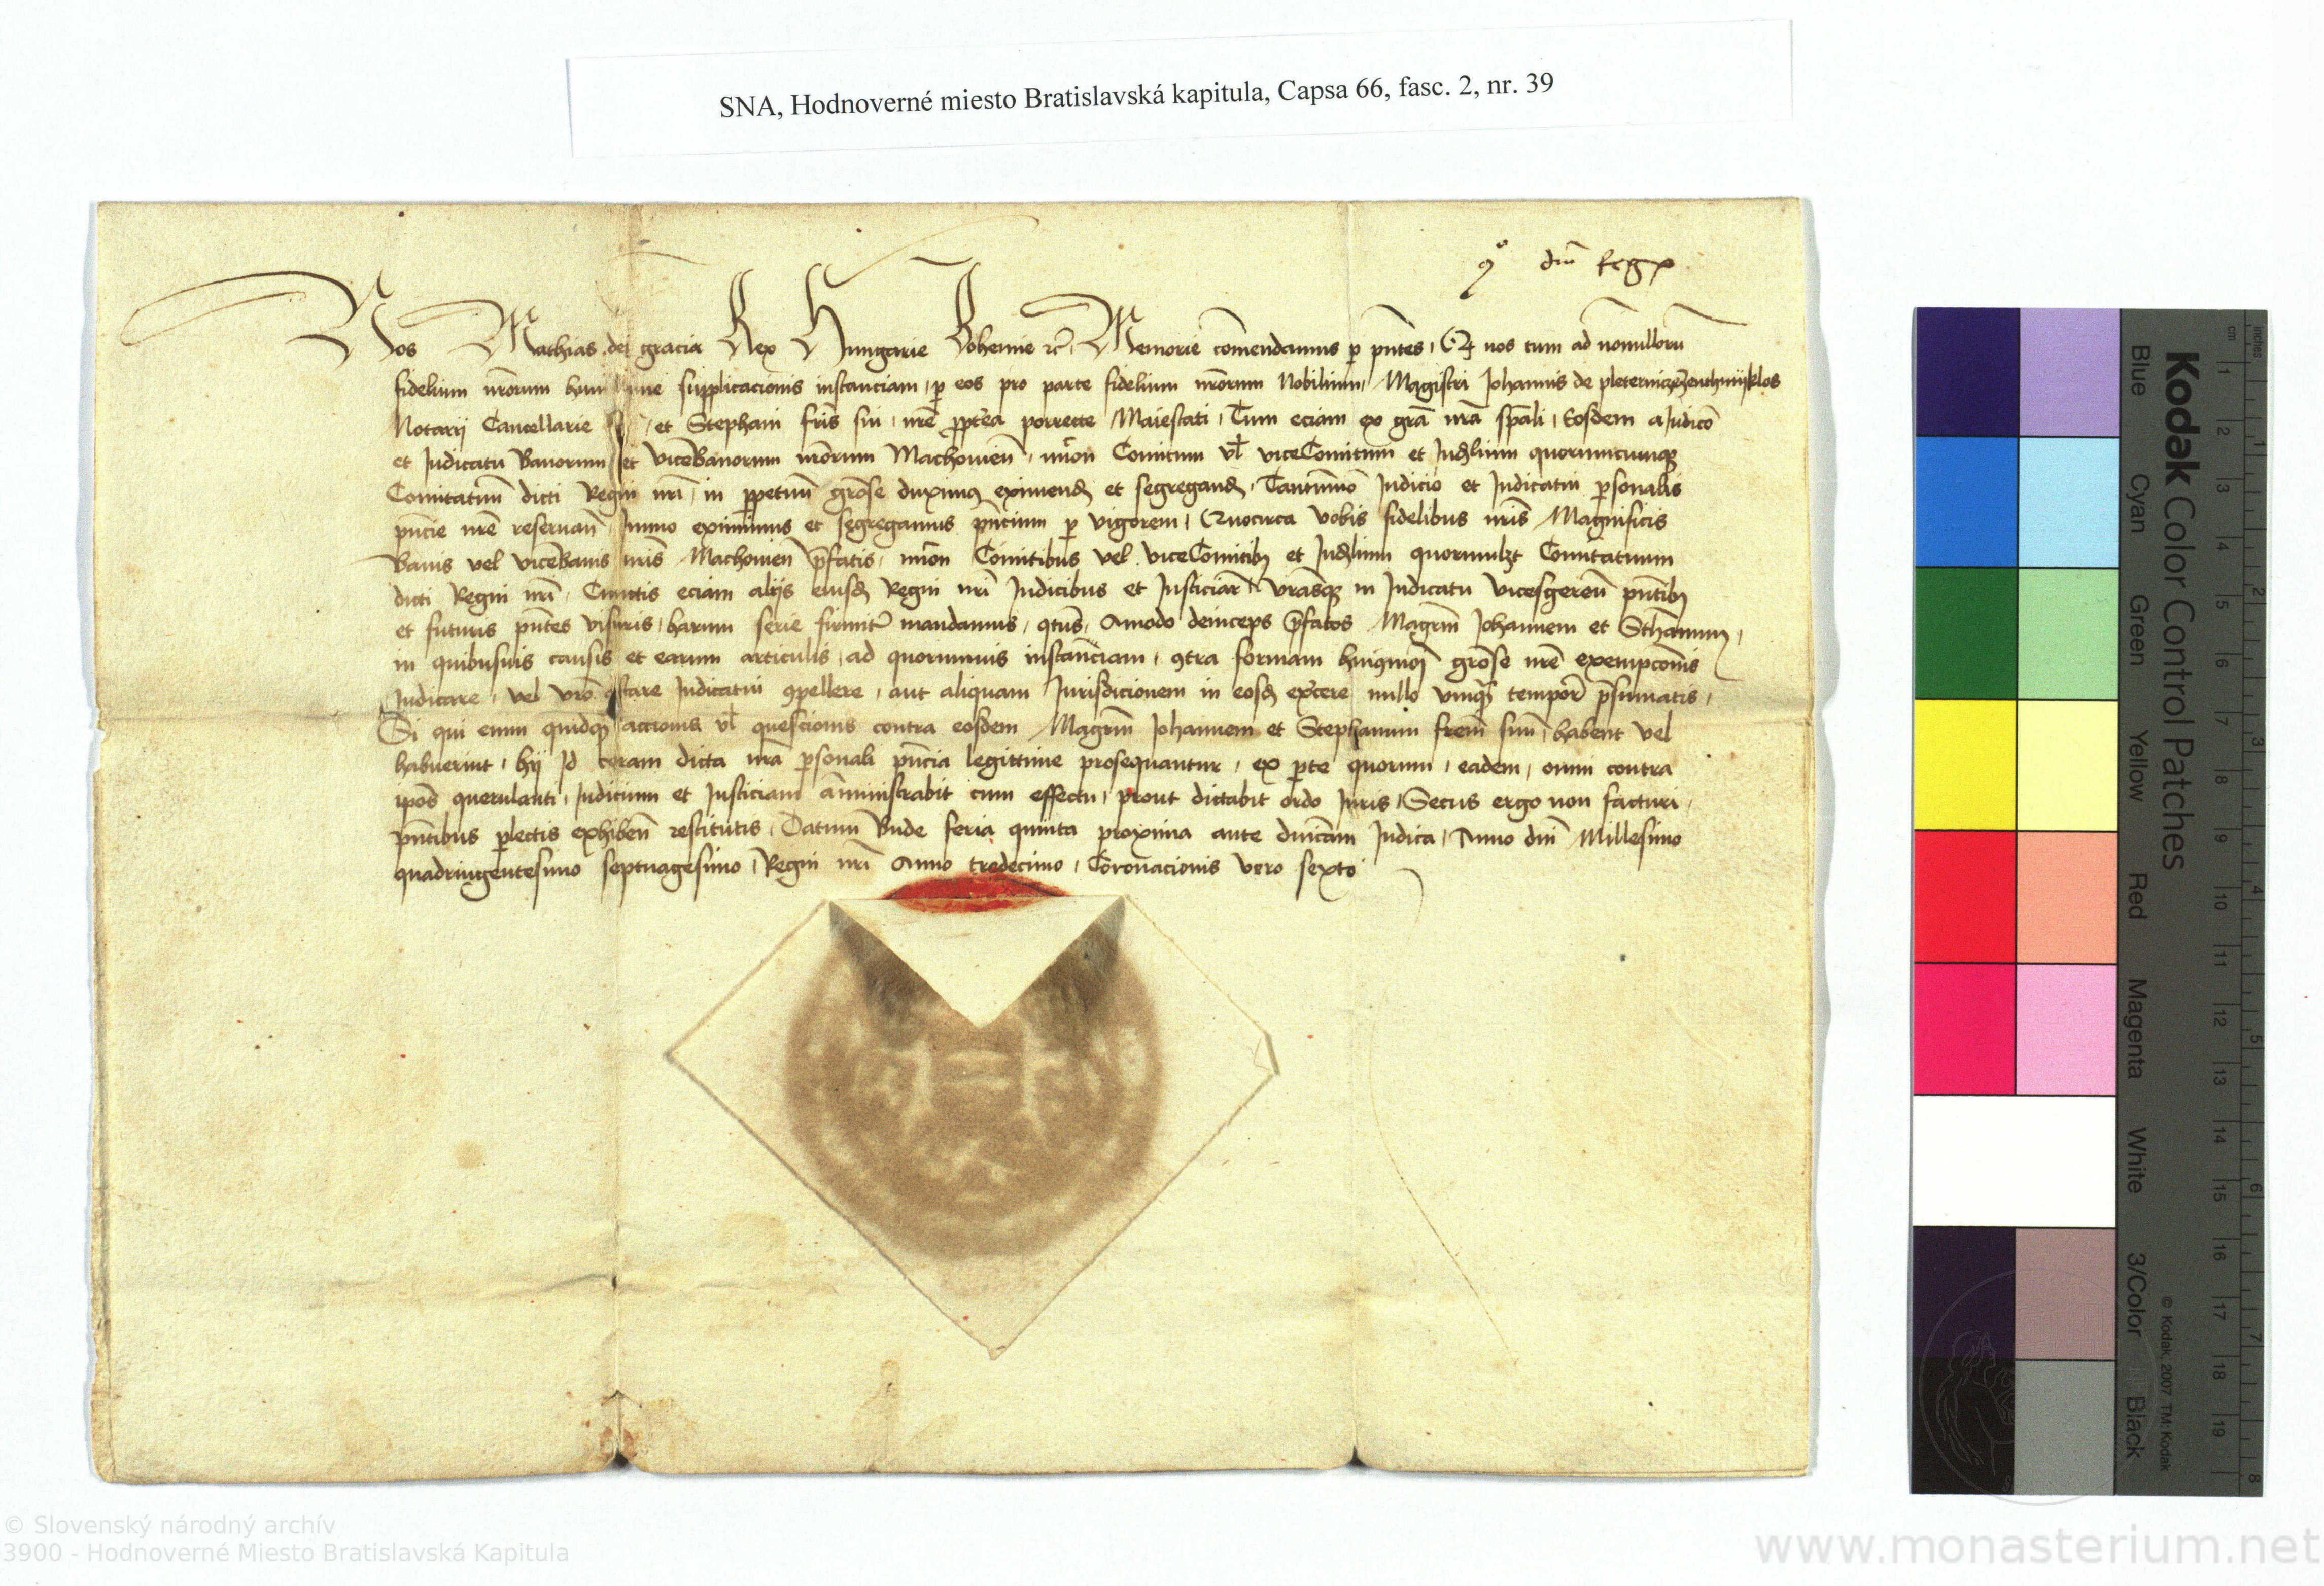 SNA, Hodnoverné miesto Bratislavská kapitula, Capsa 66, fasc. 2, nr. 39
dni Regꝭ
Nos Mathias dei gracia Rex Hungarie Bohemie ⁊c̃ Memorie com̃endamus ꝑ pñtes, Qꝫ nos tum ad nonnullorũ
fidelium nr̃orum hum supplicacionis instanciam, ꝑ eos pro parte fidelium nr̃orum Nobilium, Magistri Johannis de
Notarij Cancellarie et Stephani fr̃is sui, nr̃e ꝓpterea porrecte Maiestati, Tum eciam ex gr̃a nr̃a sp̃ali, Eosdem a Judicio
et Judicatu Banorum et viceBanorum nr̃orum Machouieñ, Comitum vl̃ viceComitum et Judlium quorumcumqꝫ
Comitatuũ dicti Regni nr̃i, in ꝑpetuũ gr̃ose duximꝰ eximend̃ et segregand̃, Tantũmodo Judicio et Judicatui ꝑsonalis
pñcie nr̃e reseruañ, Immo eximimus et segregamus pñcium ꝑ vigorem, Quocirca vobis fidelibus nr̃is Magnificis
Banis vel viceBanis nr̃is Machouieñ p̃fatis, Comitibus vel viceComitibꝫ et Judlium quorumlꝫt Comitatuum
dicti Regni nr̃i, Cunctis eciam alijs eiusd̃ Regni nr̃i Judicibus et Justiciar̃, vr̃asqꝫ in Judicatu vicesgereñ pñtibꝫ
et futuris pñtes visuris, harum serie firmit̃ mandamus, qt̃us, Amodo deinceps p̃fatos Magr̃m Johannem et Stħanum,
in quibusuis causis et earum articulis, ad quorumuis instanciam, ꝯtra formam huiꝰmoi gr̃ose nr̃e exempcois
Judicare, vel vr̃o astare Judicatui ꝯpellere, aut aliquam Jurisdicionem in eosd̃ ex̃cere nullo vnqꝫ tempor̃ p̃sumatis,
Si qui enim quidqꝫ accionis vl̃ questionis contra eosdem Magr̃m Johannem et Stephanum fr̃em suũ, habent vel
habuerint, hij Id coram dicta nr̃a ꝑsonali pñcia legittime prosequantur, ex ꝑte quorum, eadem, omni contra
ip̃os querulanti, Judicium et Justiciam am̃inistrabit cum effectu, prout dictabit ordo Juris, Secus ergo non facturi,
pñtibus ꝑlectis exhibeñ restitutis, Datum Bude feria quinta proxima ante dñicam Judica, Anno dñi Millesimo
quadringentesimo septuagesimo, Regni nr̃i Anno tredecimo, Coronacionis vero sexto
Kodak Color Control Patches
Blue Cyan Green Yellow Red Magenta White 3/Color Black
cm 1 2 3 4 5 6 7 8 9 10 11 12 13 14 15 16 17 18 19
inches 1 2 3 4 5 6 7 8
© Kodak, 2007 TM: Kodak
© Slovenský národný archív
3900 - Hodnoverné Miesto Bratislavská Kapitula
www.monasterium.net